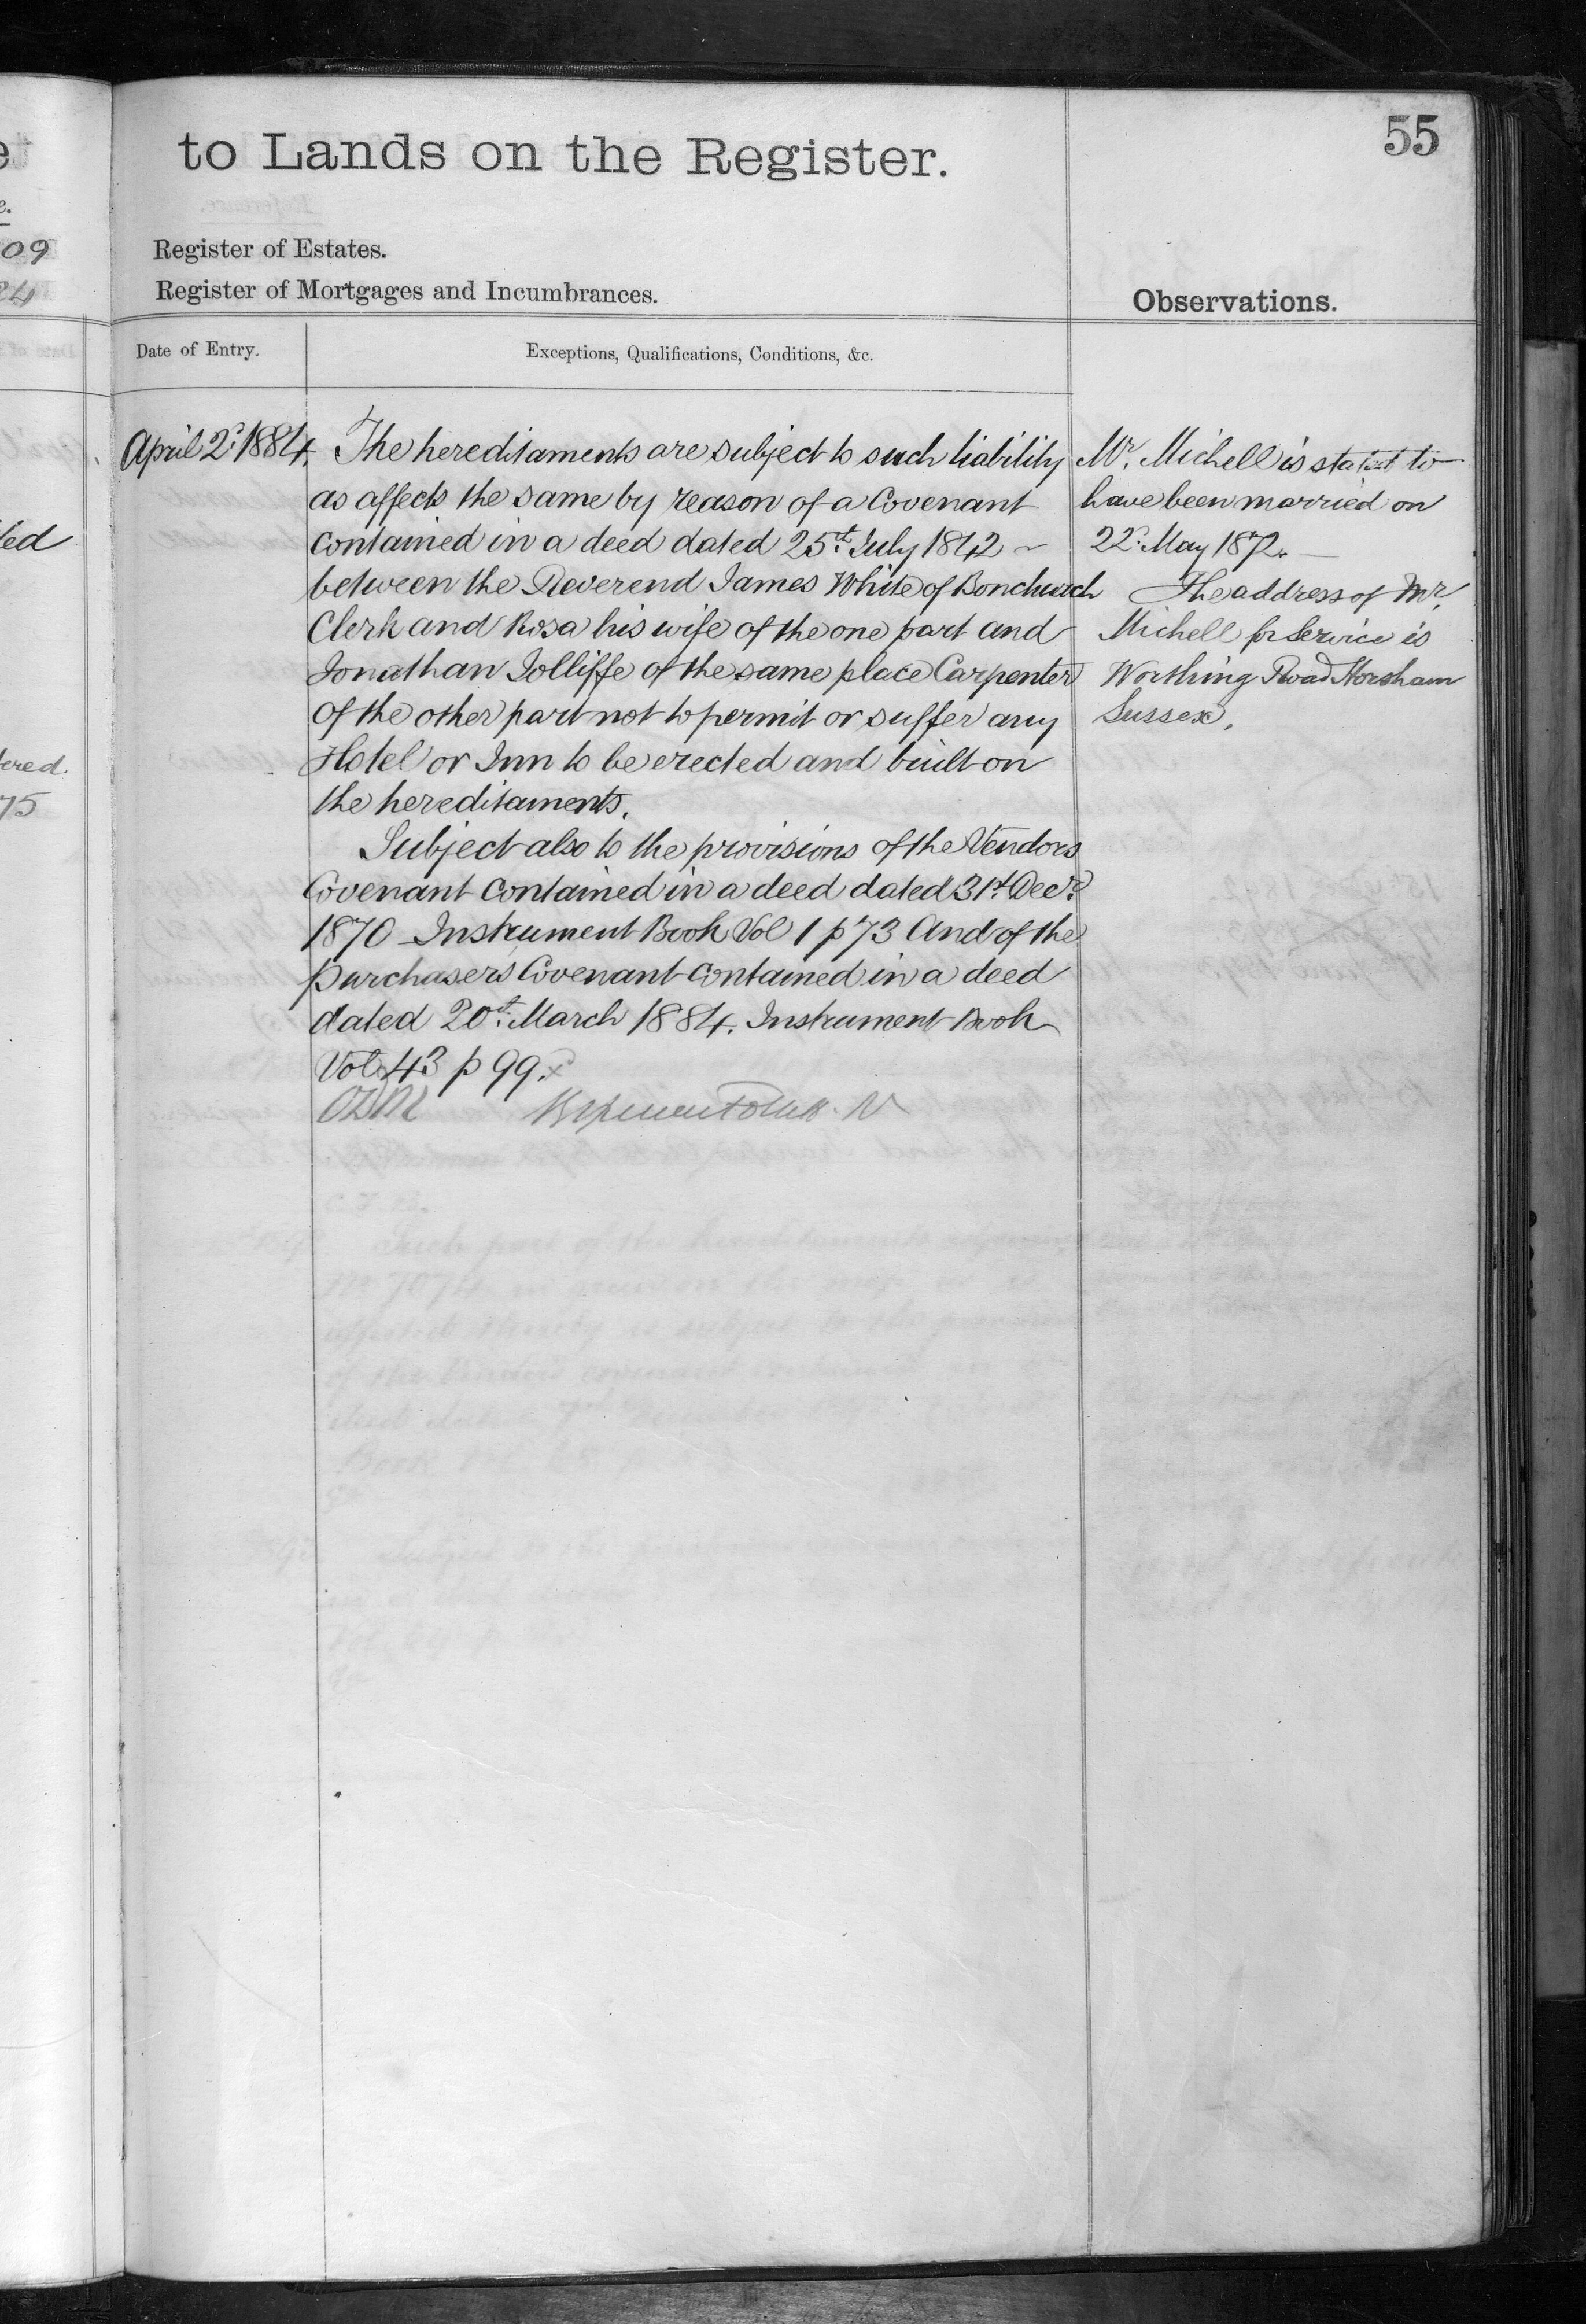 55
to Lands on the Register.
Register of Estates.
Register of Mortgages and Incumbrances.
Observations.
Date of Entry.
Exceptions, Qualifications, Conditions, &c.
April 2d 1884.
The hereditaments are subject to such liability
as affects the same by reason of a Covenant
contained in a deed dated 25th July 1842 ~
between the Reverend James White of Bonchurch
Clerk and Rosa his wife of the one part and
Jonathan Jolliffe of the same place Carpenter
of the other part not to permit or suffer any
Hotel or Inn to be erected and built on
the hereditaments.
Subject also to the provisions of the Vendors
Covenant contained in a deed dated 31st Decr
1870 Instrument Book Vol 1 p 73 And of the
purchasers Covenant contained in a deed
dated 20th March 1884. Instrument Book
Vol 43 p 99.
Mr. Michell is stated to
have been married on
22d May 1872.
The address of Mr.
Michell for Service is
Worthing Road Horsham
Sussex.
09
24
led
ered.
75